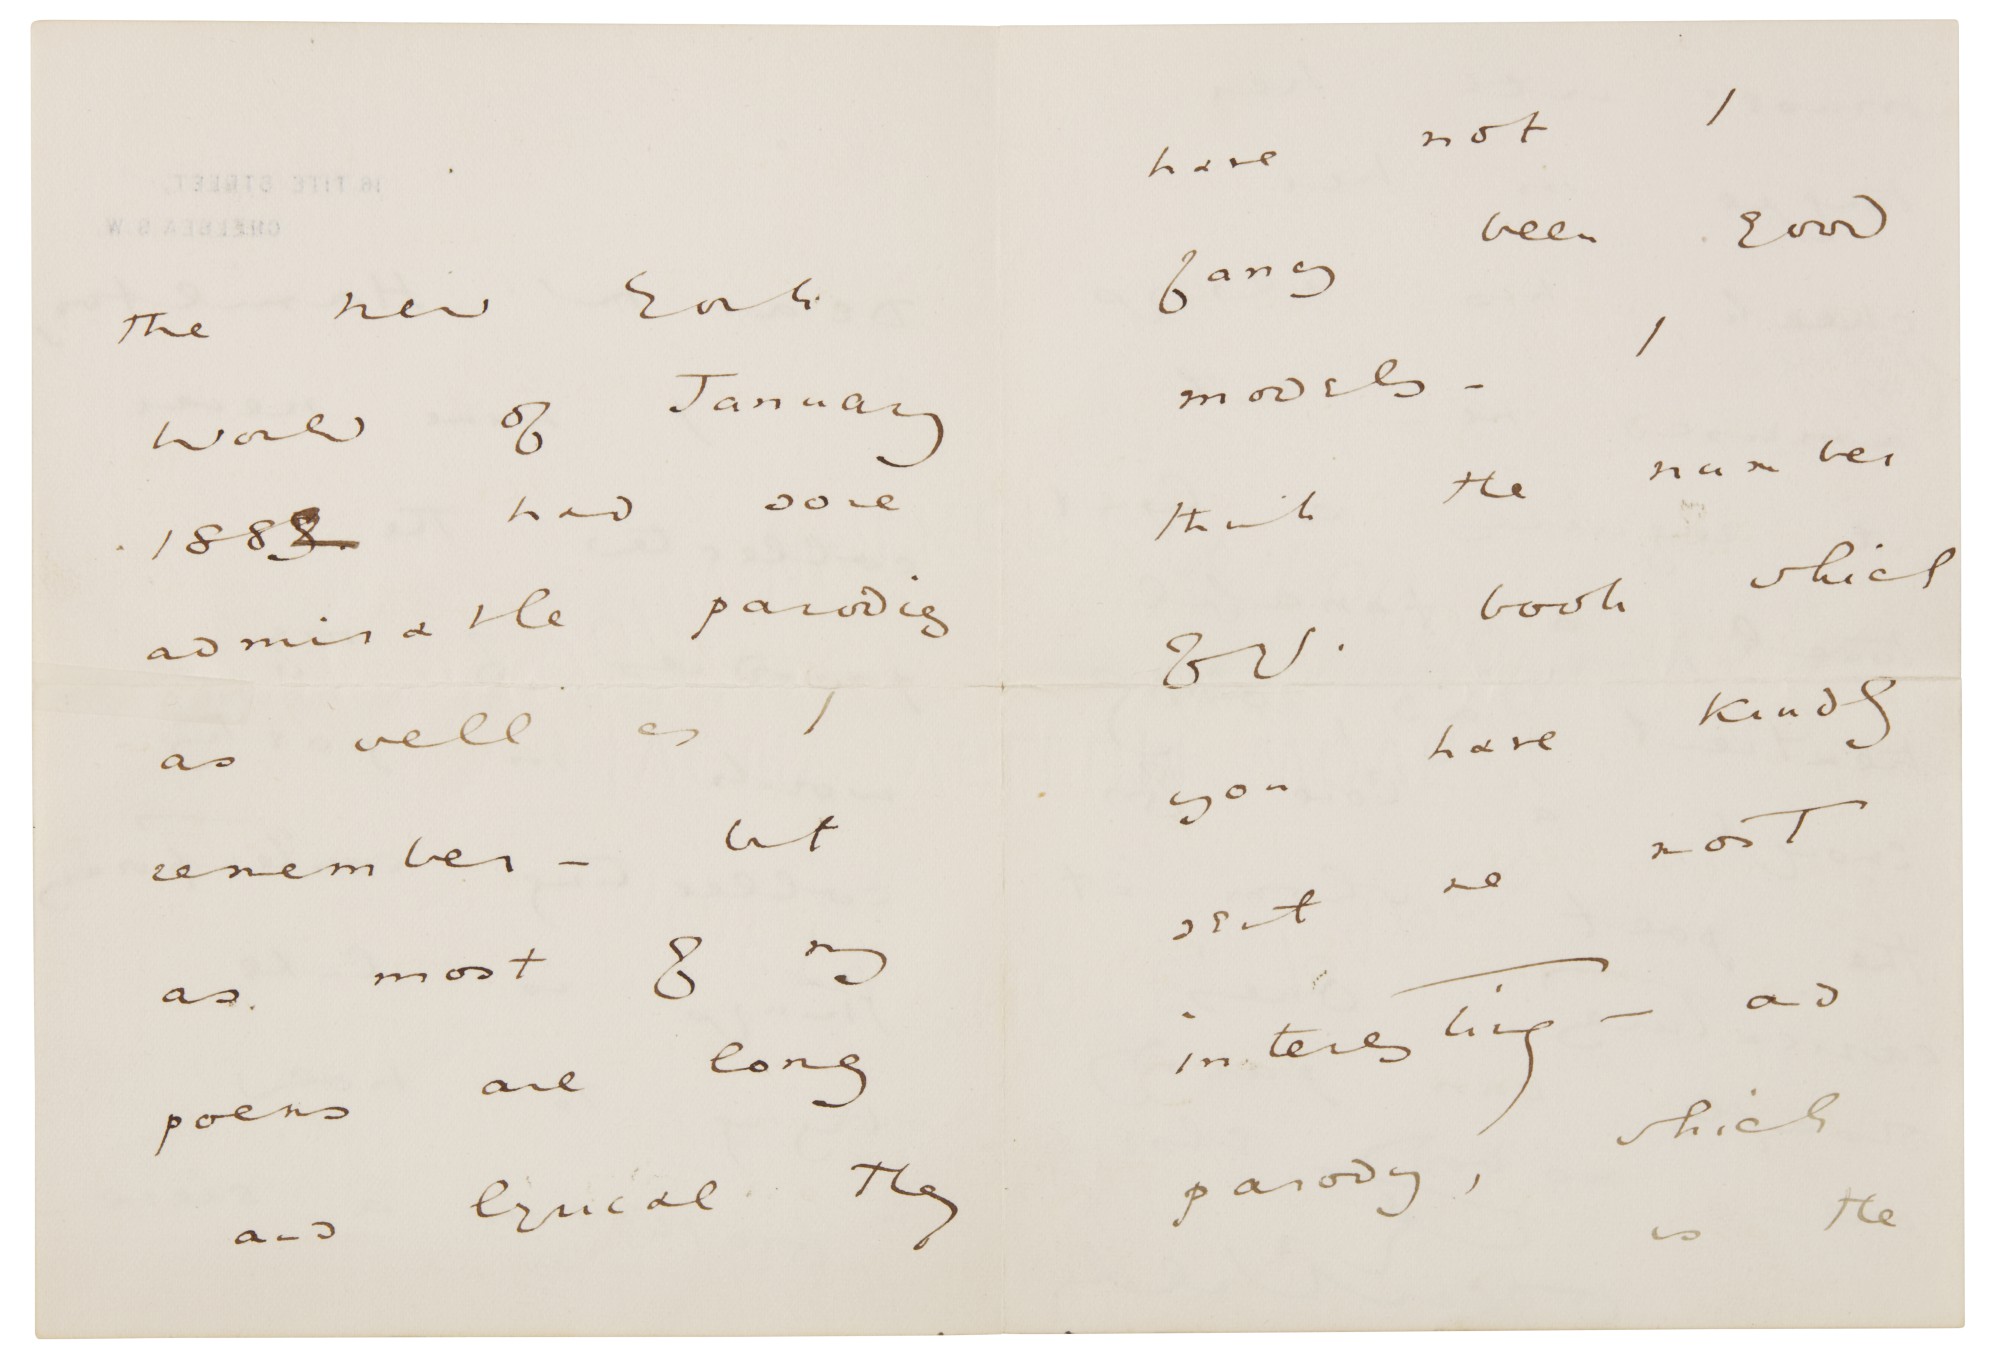 16 TITE STREET,
CHELSEA S.W.
the New York
World of January
1883 had some
admirable parodies
as well as I
remember – but
as most of my
poems are long
and lyrical they
have not I
fancy been good
models – I
think the number
of yr. book which
you have kindly
sent me most
interesting – and
parody, which
is the